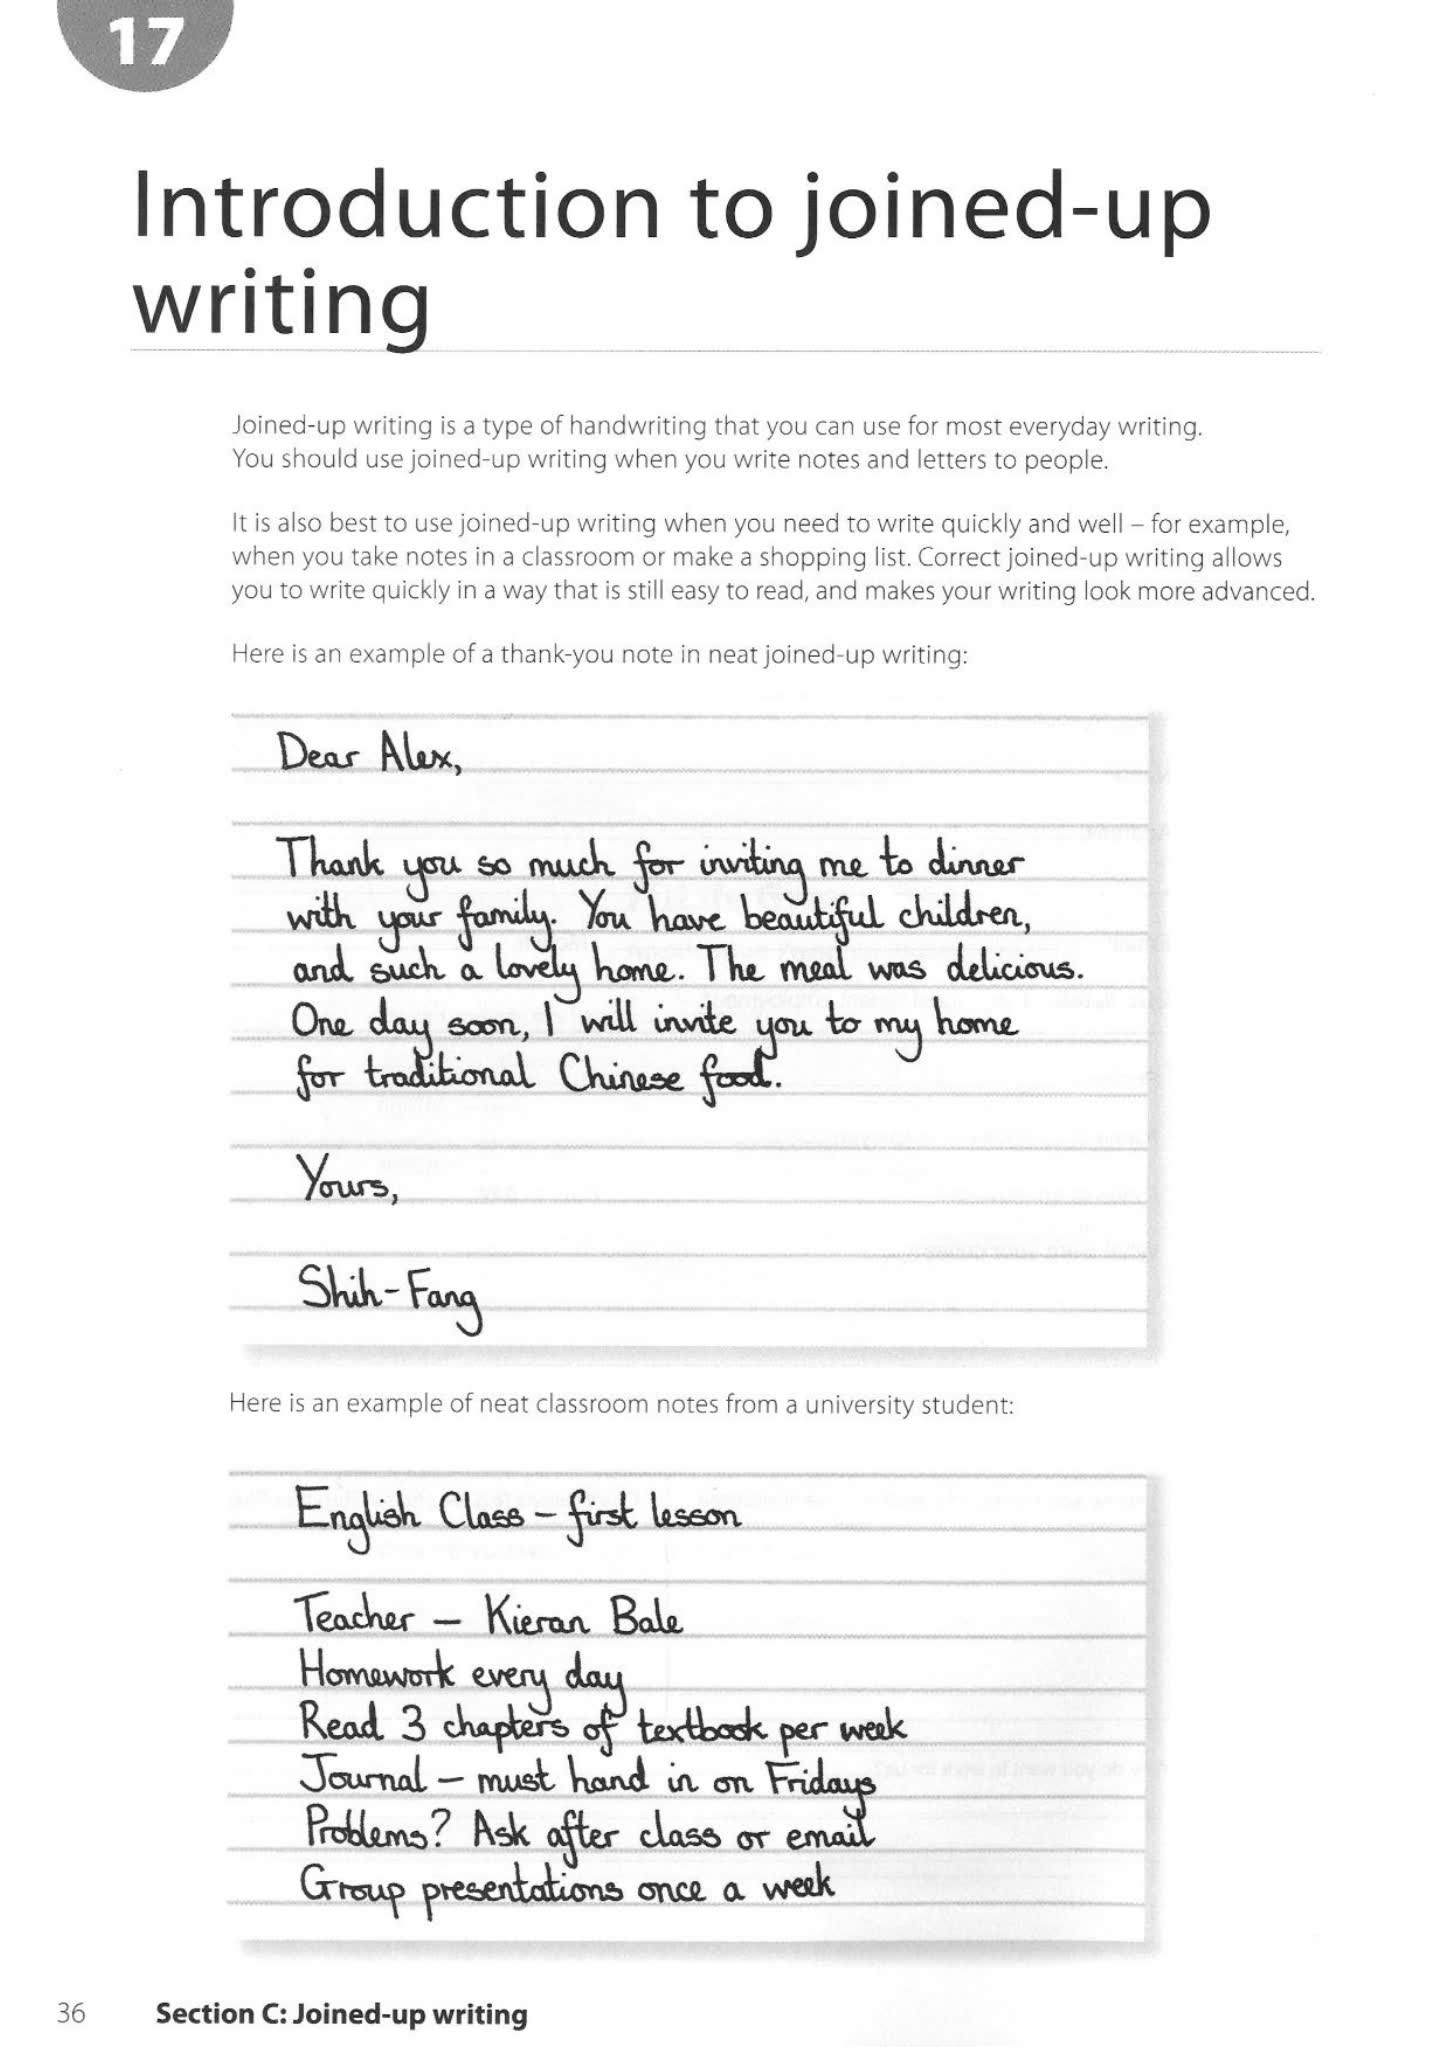 17
Introduction to joined-up
writing
Joined-up writing is a type of handwriting that you can use for most everyday writing.
You should use joined-up writing when you write notes and letters to people.
It is also best to use joined-up writing when you need to write quickly and well – for example,
when you take notes in a classroom or make a shopping list. Correct joined-up writing allows
you to write quickly in a way that is still easy to read, and makes your writing look more advanced.
Here is an example of a thank-you note in neat joined-up writing:
Dear Alex,
Thank you so much for inviting me to dinner
with your family. You have beautiful children,
and such a lovely home. The meal was delicious.
One day soon, I will invite you to my home
for traditional Chinese food.
Yours,
Shih-Fang
Here is an example of neat classroom notes from a university student:
English Class – first lesson
Teacher – Kieran Bale
Homework every day
Read 3 chapters of textbook per week
Journal – must hand in on Fridays
Problems? Ask after class or email
Group presentations once a week
36 Section C: Joined-up writing